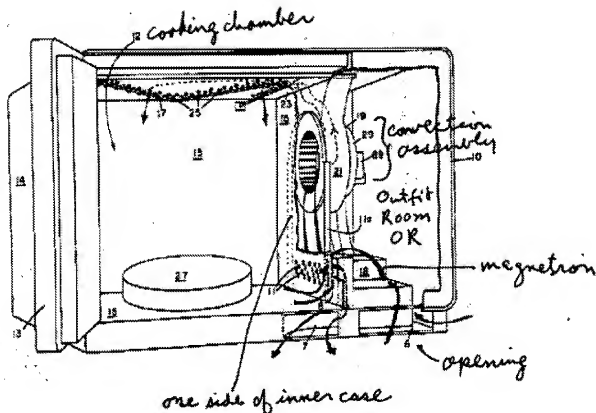 12 cooking chamber
17
25
23
15
19
29
28
} convection assembly
14
15
21
10
11a
Outfit
Room
OR
18
magnetron
27
11
16
13
7
6
opening
one side of inner case